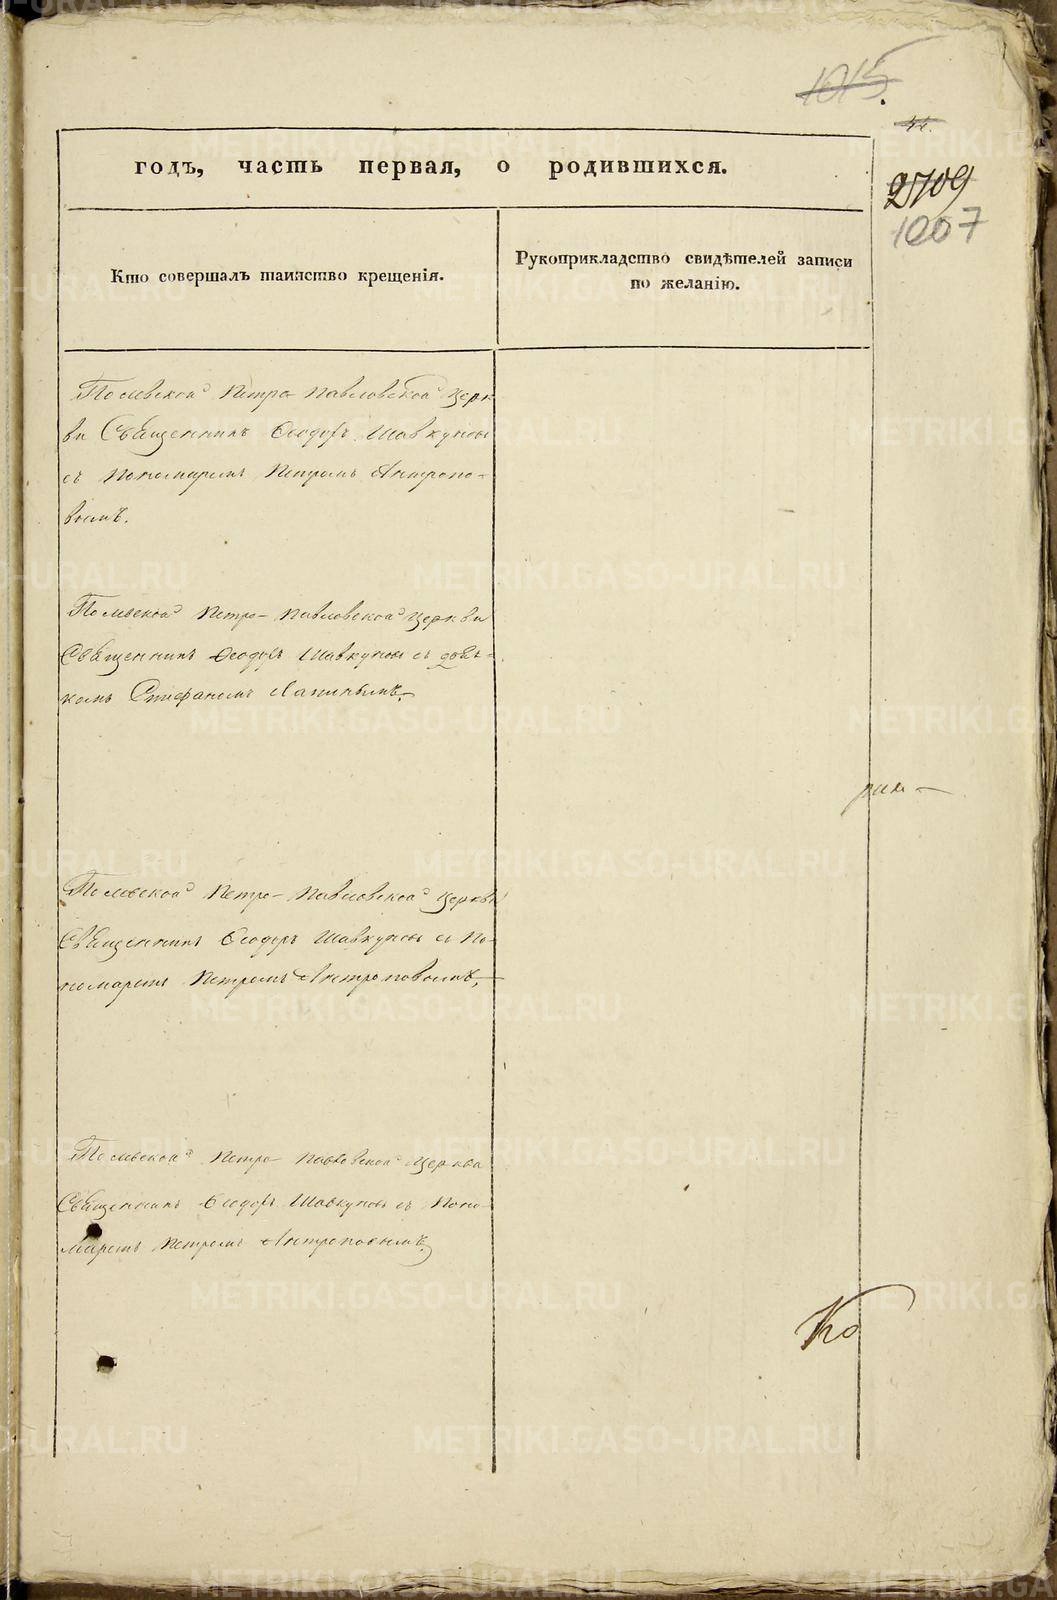 1015
44.
годъ, часть первая, о родившихся.
2709
1007
Кто совершалъ таинство крещенія.
Рукоприкладство свидѣтелей записи
по желанію.
Полевской Петро-Павловской Церк
ви Священникъ Ѳеодоръ Шавкуновъ
съ Пономаремъ Петромъ Антропо-
вымъ.
Полевской Петро-Павловской Церкви
Священникъ Ѳеодоръ Шавкуновъ съ дьяч-
комъ Стефаномъ Лапинымъ.
Полевской Петро-Павловской Церкви
Священникъ Ѳеодоръ Шавкуновъ съ По-
номаремъ Петромъ Антроповымъ.
Полевской Петро-Павловской Церкви
Священникъ Ѳеодоръ Шавкуновъ съ Поно-
маремъ Петромъ Антроповымъ.
Ко
METRIKI.GASO-URAL.RU